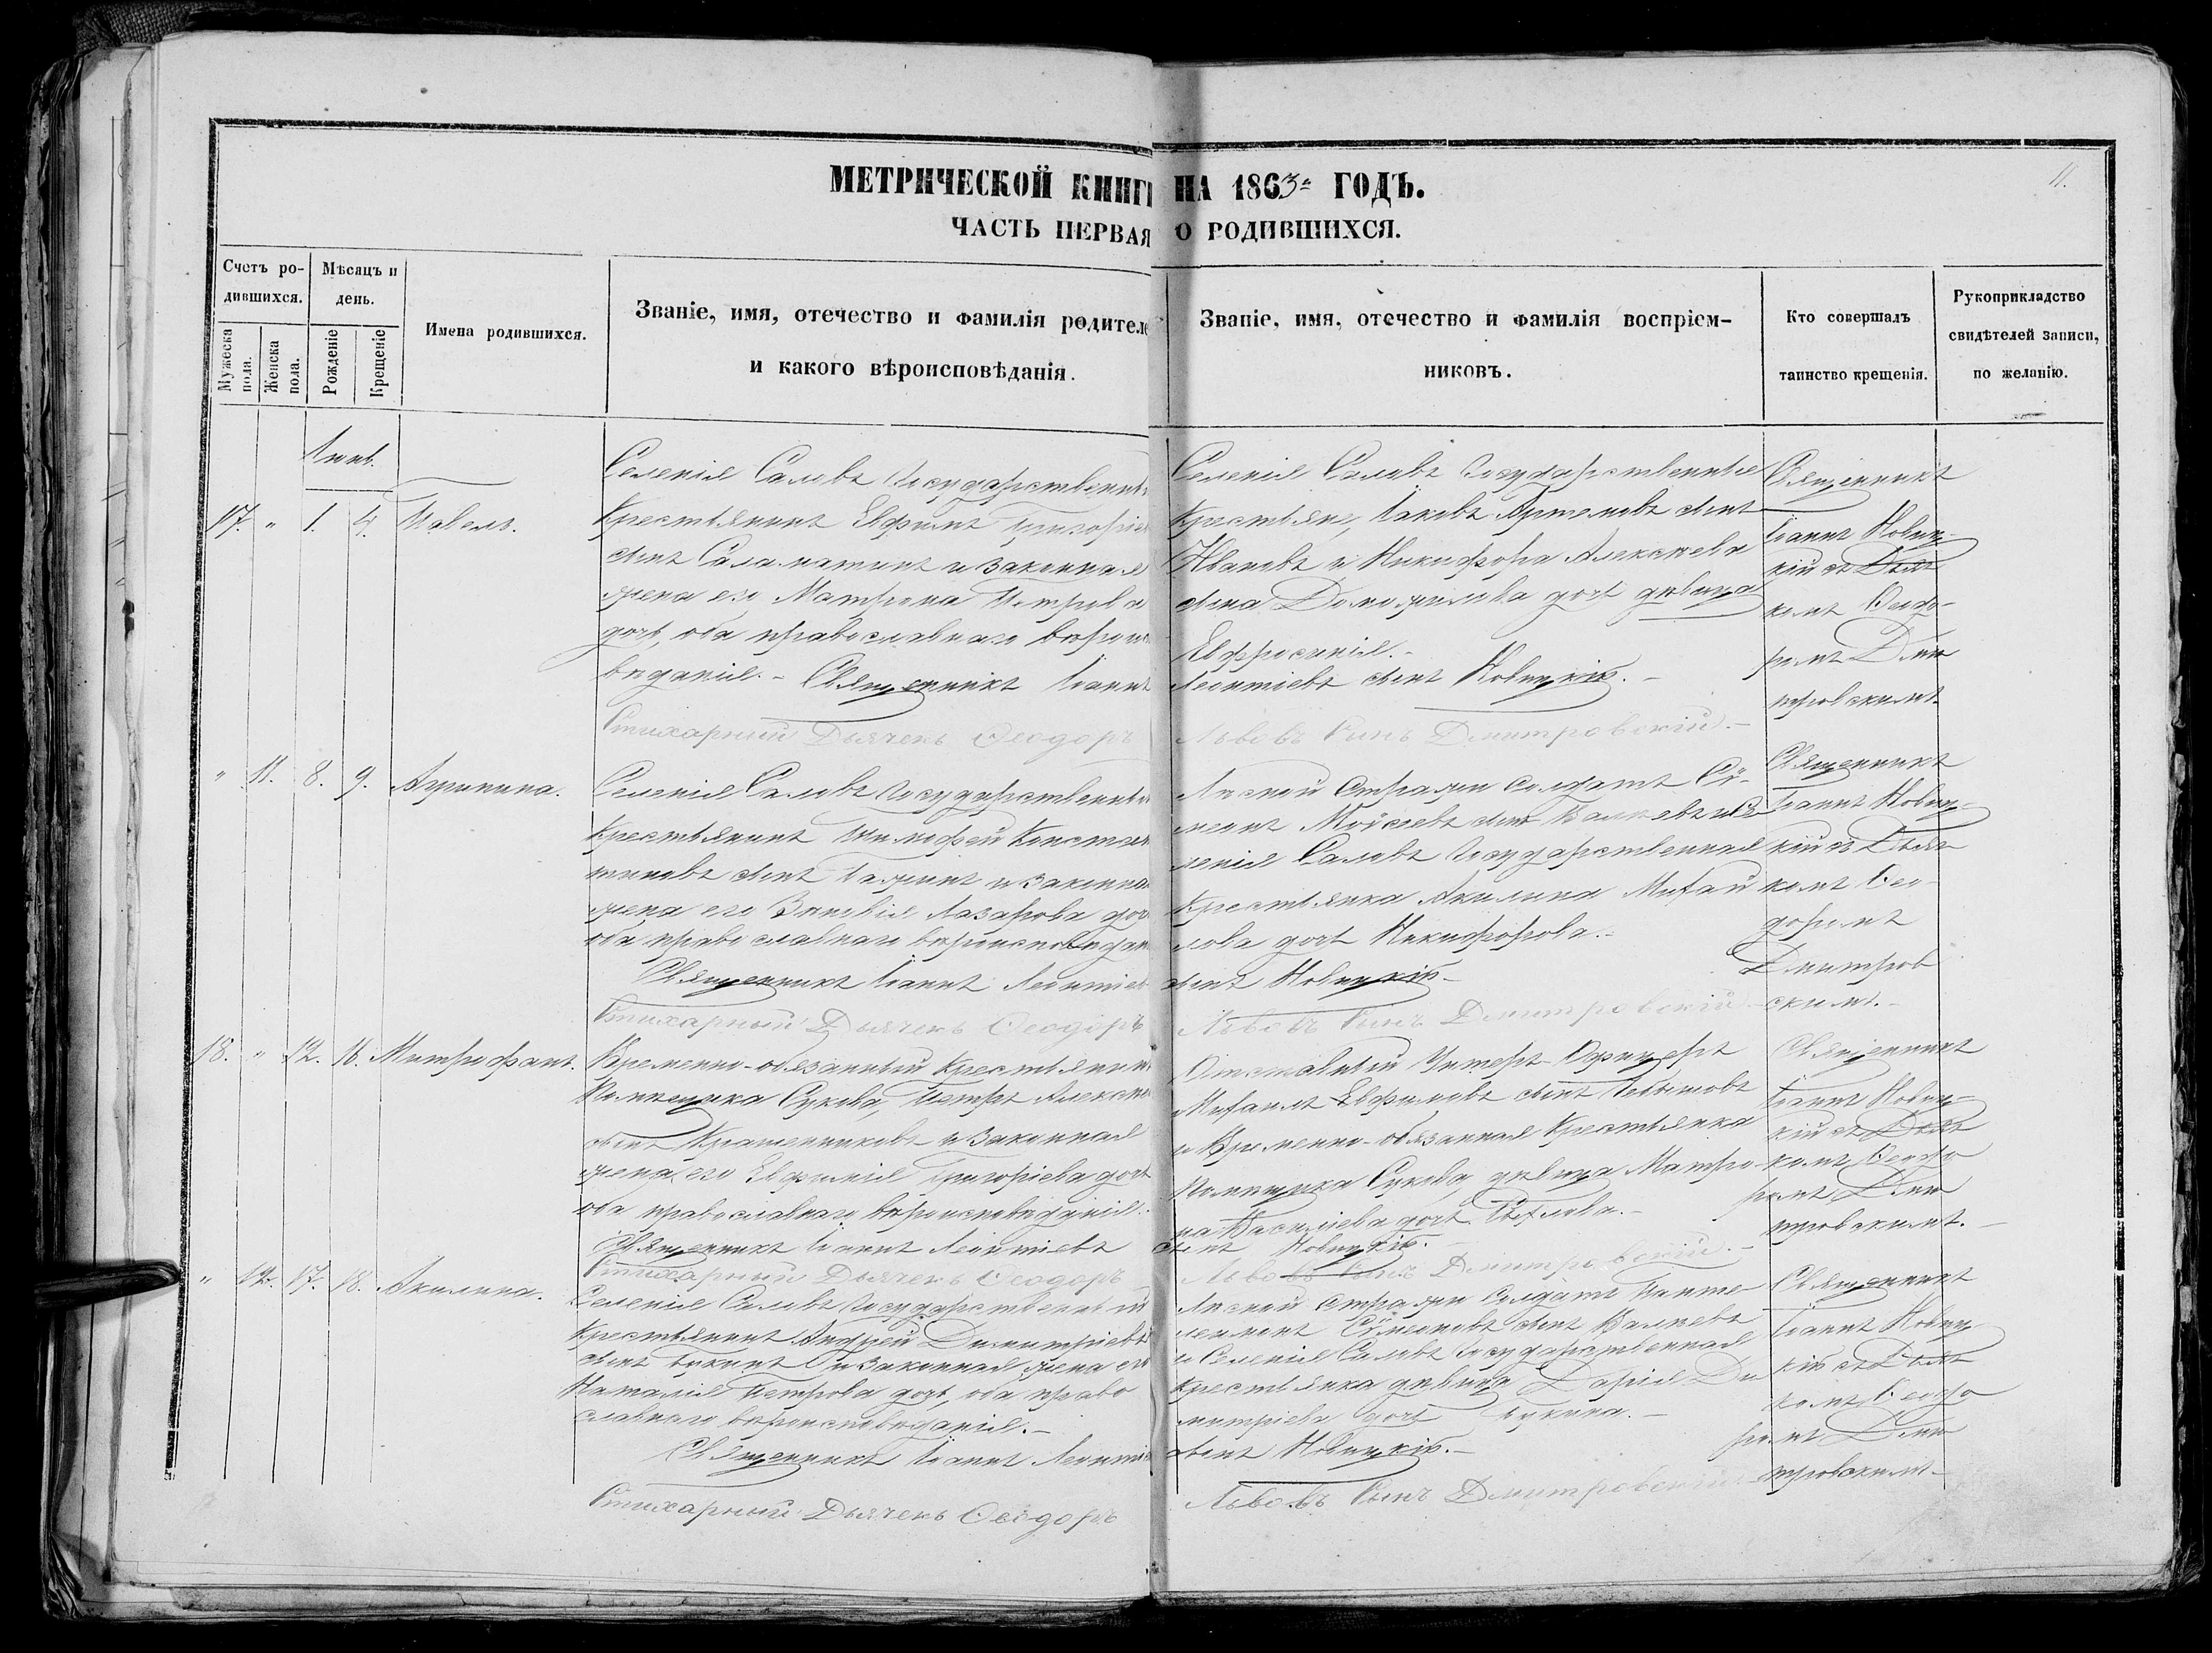 МЕТРИЧЕСКОЙ КНИГИ НА 1863й ГОДЪ.
11.
ЧАСТЬ ПЕРВАЯ О РОДИВШИХСЯ.
Счетъ ро-
дившихся.
Мужеска
пола.
Женска
пола.
Мѣсяцъ и
день.
Рожденіе
Крещеніе
Имена родившихся.
Званіе, имя, отечество и фамилія родителе
и какого вѣроисповѣданія.
Званіе, имя, отечество и фамилія воспріем-
никовъ.
Кто совершалъ
таинство крещенія.
Рукоприкладство
свидѣтелей записи,
по желанію.
17. " 1. 4. Павелъ.
Селенія Саловъ Государственный
Крестьянинъ Евфимъ Григоріе
сынъ Саламатинъ и законная
жена его Матрона Петрова
дочь, оба православнаго вѣроис
вѣданія. - Священникъ Іоаннъ
Стихарный Дьячекъ Ѳеодоръ
Селенія Саловъ Государственные
Крестьяне, Іаковъ Артемовъ сынъ
Ивановъ и Никифора Алексѣева
сына Доможилова дочь дѣвица
Евфросинія. -
Леонтіевъ сынъ Новицкій. -
Львовъ Сынъ Дмитровскій. -
Священникъ
Іоаннъ Новиц-
кій съ Дьяч
комъ Ѳеодо-
ромъ Дми
тровскимъ.
" 11. 8. 9. Агрипина.
Селенія Саловъ Государственный
Крестьянинъ Тимофей Констан
тиновъ сынъ и законна
жена его Зиновія Лазарова доч
оба православнаго вѣроисповѣдан
Священникъ Іоаннъ Леонтіев
Стихарный Дьячекъ Ѳеодоръ
Лѣсной стражи Солдатъ Сѵ-
меонъ Моѵсеевъ сынъ и Се
ленія Саловъ Государственная
Крестьянка Акилина Михай
лова дочь Никифорова. -
сынъ Новицкій -
Львовъ Сынъ Дмитровскій -
Священникъ
Іоаннъ Новиц-
кій съ Дьяч-
комъ Ѳео-
доромъ
Дмитров
скимъ. -
18. " 12. 16. Митрофанъ.
Временно-обязанный Крестьянин
Помѣщика Сукова, Петръ Алексѣе
сынъ Крашенниковъ и Законная
жена его Евфимія Григоріева дочь
оба православнаго вѣроисповѣданія. -
Священникъ Іоаннъ Леонтіевъ
Стихарный Дьячекъ Ѳеодоръ
Отставной Унтеръ-Офицеръ
Михаилъ Евфимовъ сынъ
и Временно-обязанная Крестьянка
Помѣщика Сукова, дѣвица Матро-
на Васильева дочь -
сынъ Новицкій. -
Львовъ Сынъ Дмитровскій. -
Священникъ
Іоаннъ Новиц-
кій съ Дьяч
комъ Ѳеодо
ромъ Дми
тровскимъ. -
" 12. 17. 18. Акилина.
Селенія Саловъ Государственный
Крестьянинъ Андрей Димитріевъ
сынъ Букинъ и законная жена его
Наталія Петрова дочь, оба право
славнаго вѣроисповѣданія. -
Священникъ Іоаннъ Леонтіе
Стихарный Дьячекъ Ѳеодоръ
Лѣсной стражи Солдатъ Панте
леимонъ Сѵмеоновъ сынъ
и Селенія Саловъ Государственная
Крестьянка дѣвица Дарія Ди
митріева дочь Букина. -
сынъ Новицкій. -
Львовъ Сынъ Дмитровскій -
Священникъ
Іоаннъ Новиц-
кій съ Дьяч
комъ Ѳеодо
ромъ Дми
тровскимъ -